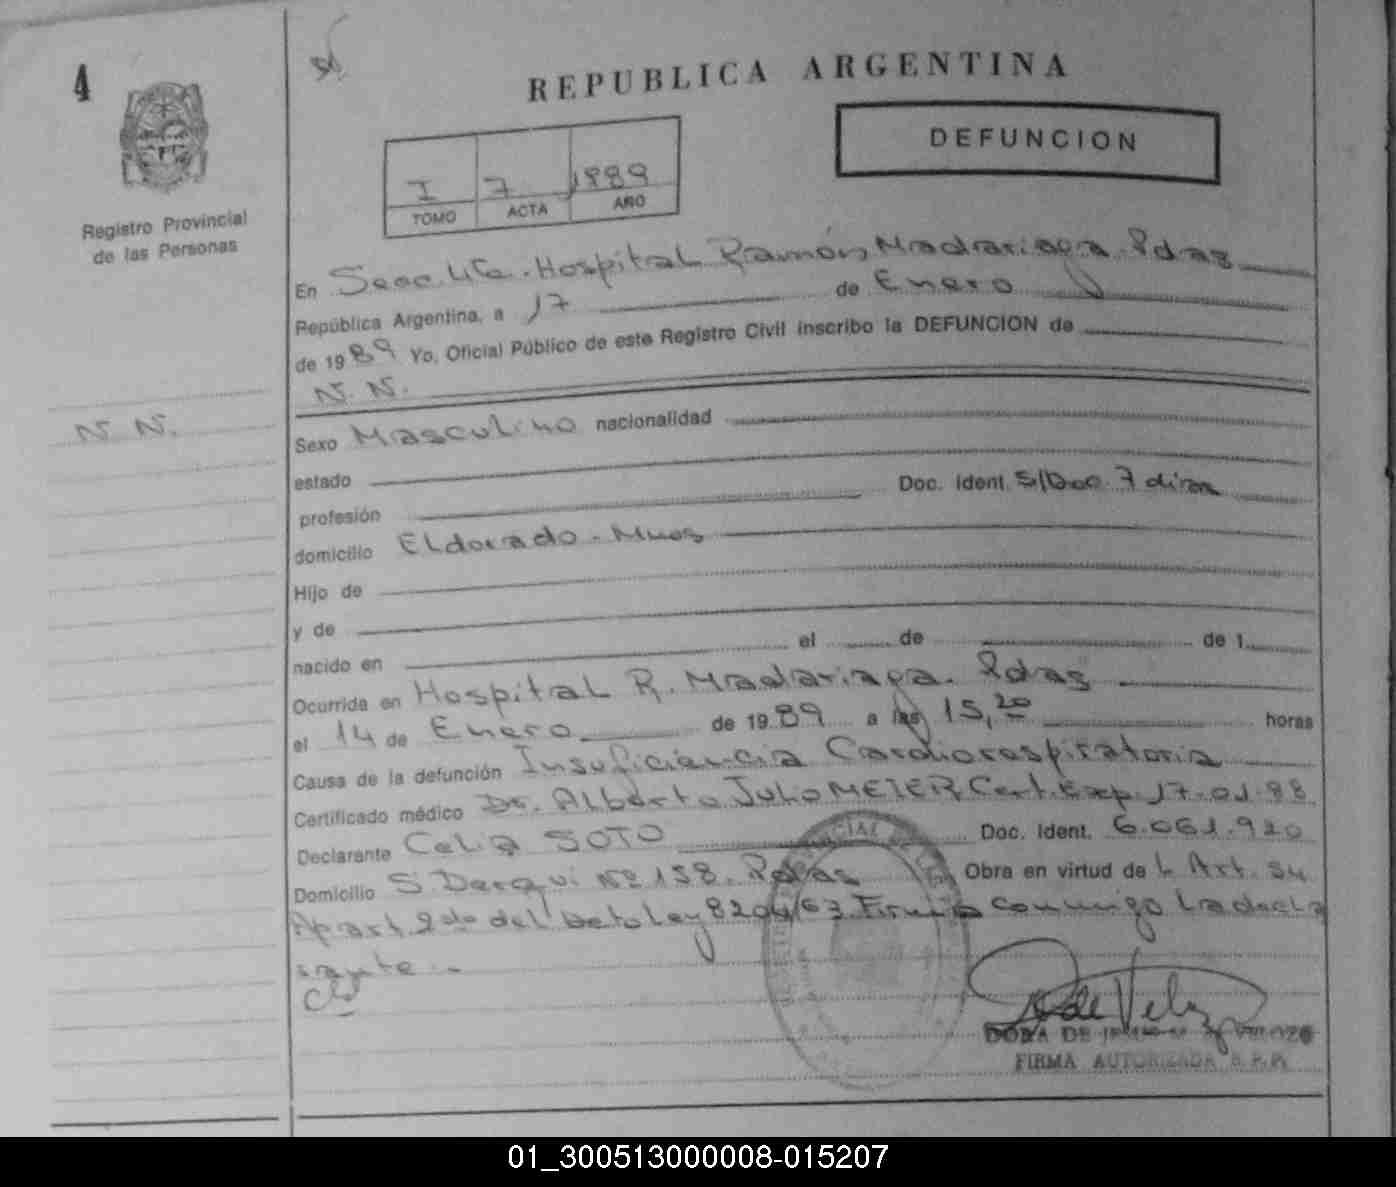 4
REPUBLICA ARGENTINA
DEFUNCION
I 7 1989
TOMO ACTA AÑO
Registro Provincial
de las Personas
En Secc. 4ta. Hospital Ramón Madariaga. Pdas
República Argentina, a 17 de Enero
de 1989 Yo, Oficial Público de este Registro Civil inscribo la DEFUNCION de
N. N.
N. N.
Sexo Masculino nacionalidad
estado
profesión Doc. Ident. S/Doc. 7 dias
domicilio Eldorado - Mnes
Hijo de
y de
nacido en el de de 1
Ocurrida en Hospital R. Madariaga. Pdas
el 14 de Enero de 1989 a las 15,20 horas
Causa de la defunción Insuficiencia Cardiorespiratoria
Certificado médico Dr. Alberto Julio MEIER, Cert. Exp. 17.01.88
Declarante Celia SOTO Doc. Ident. 6.061.920
Domicilio S. Derqui Nº 158. Pdas Obra en virtud de L. Art. 34
Apart. 2do del Dcto Ley 8204/63. Firma conmigo la decla
rante.-
DORA DE
FIRMA AUTORIZADA R.P.P.
01_300513000008-015207